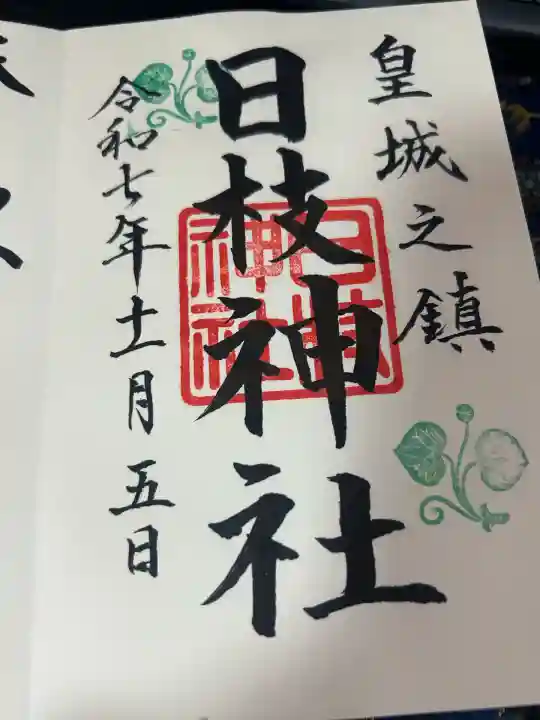 皇城之鎮
日枝神社
日枝神社
令和七年十一月五日